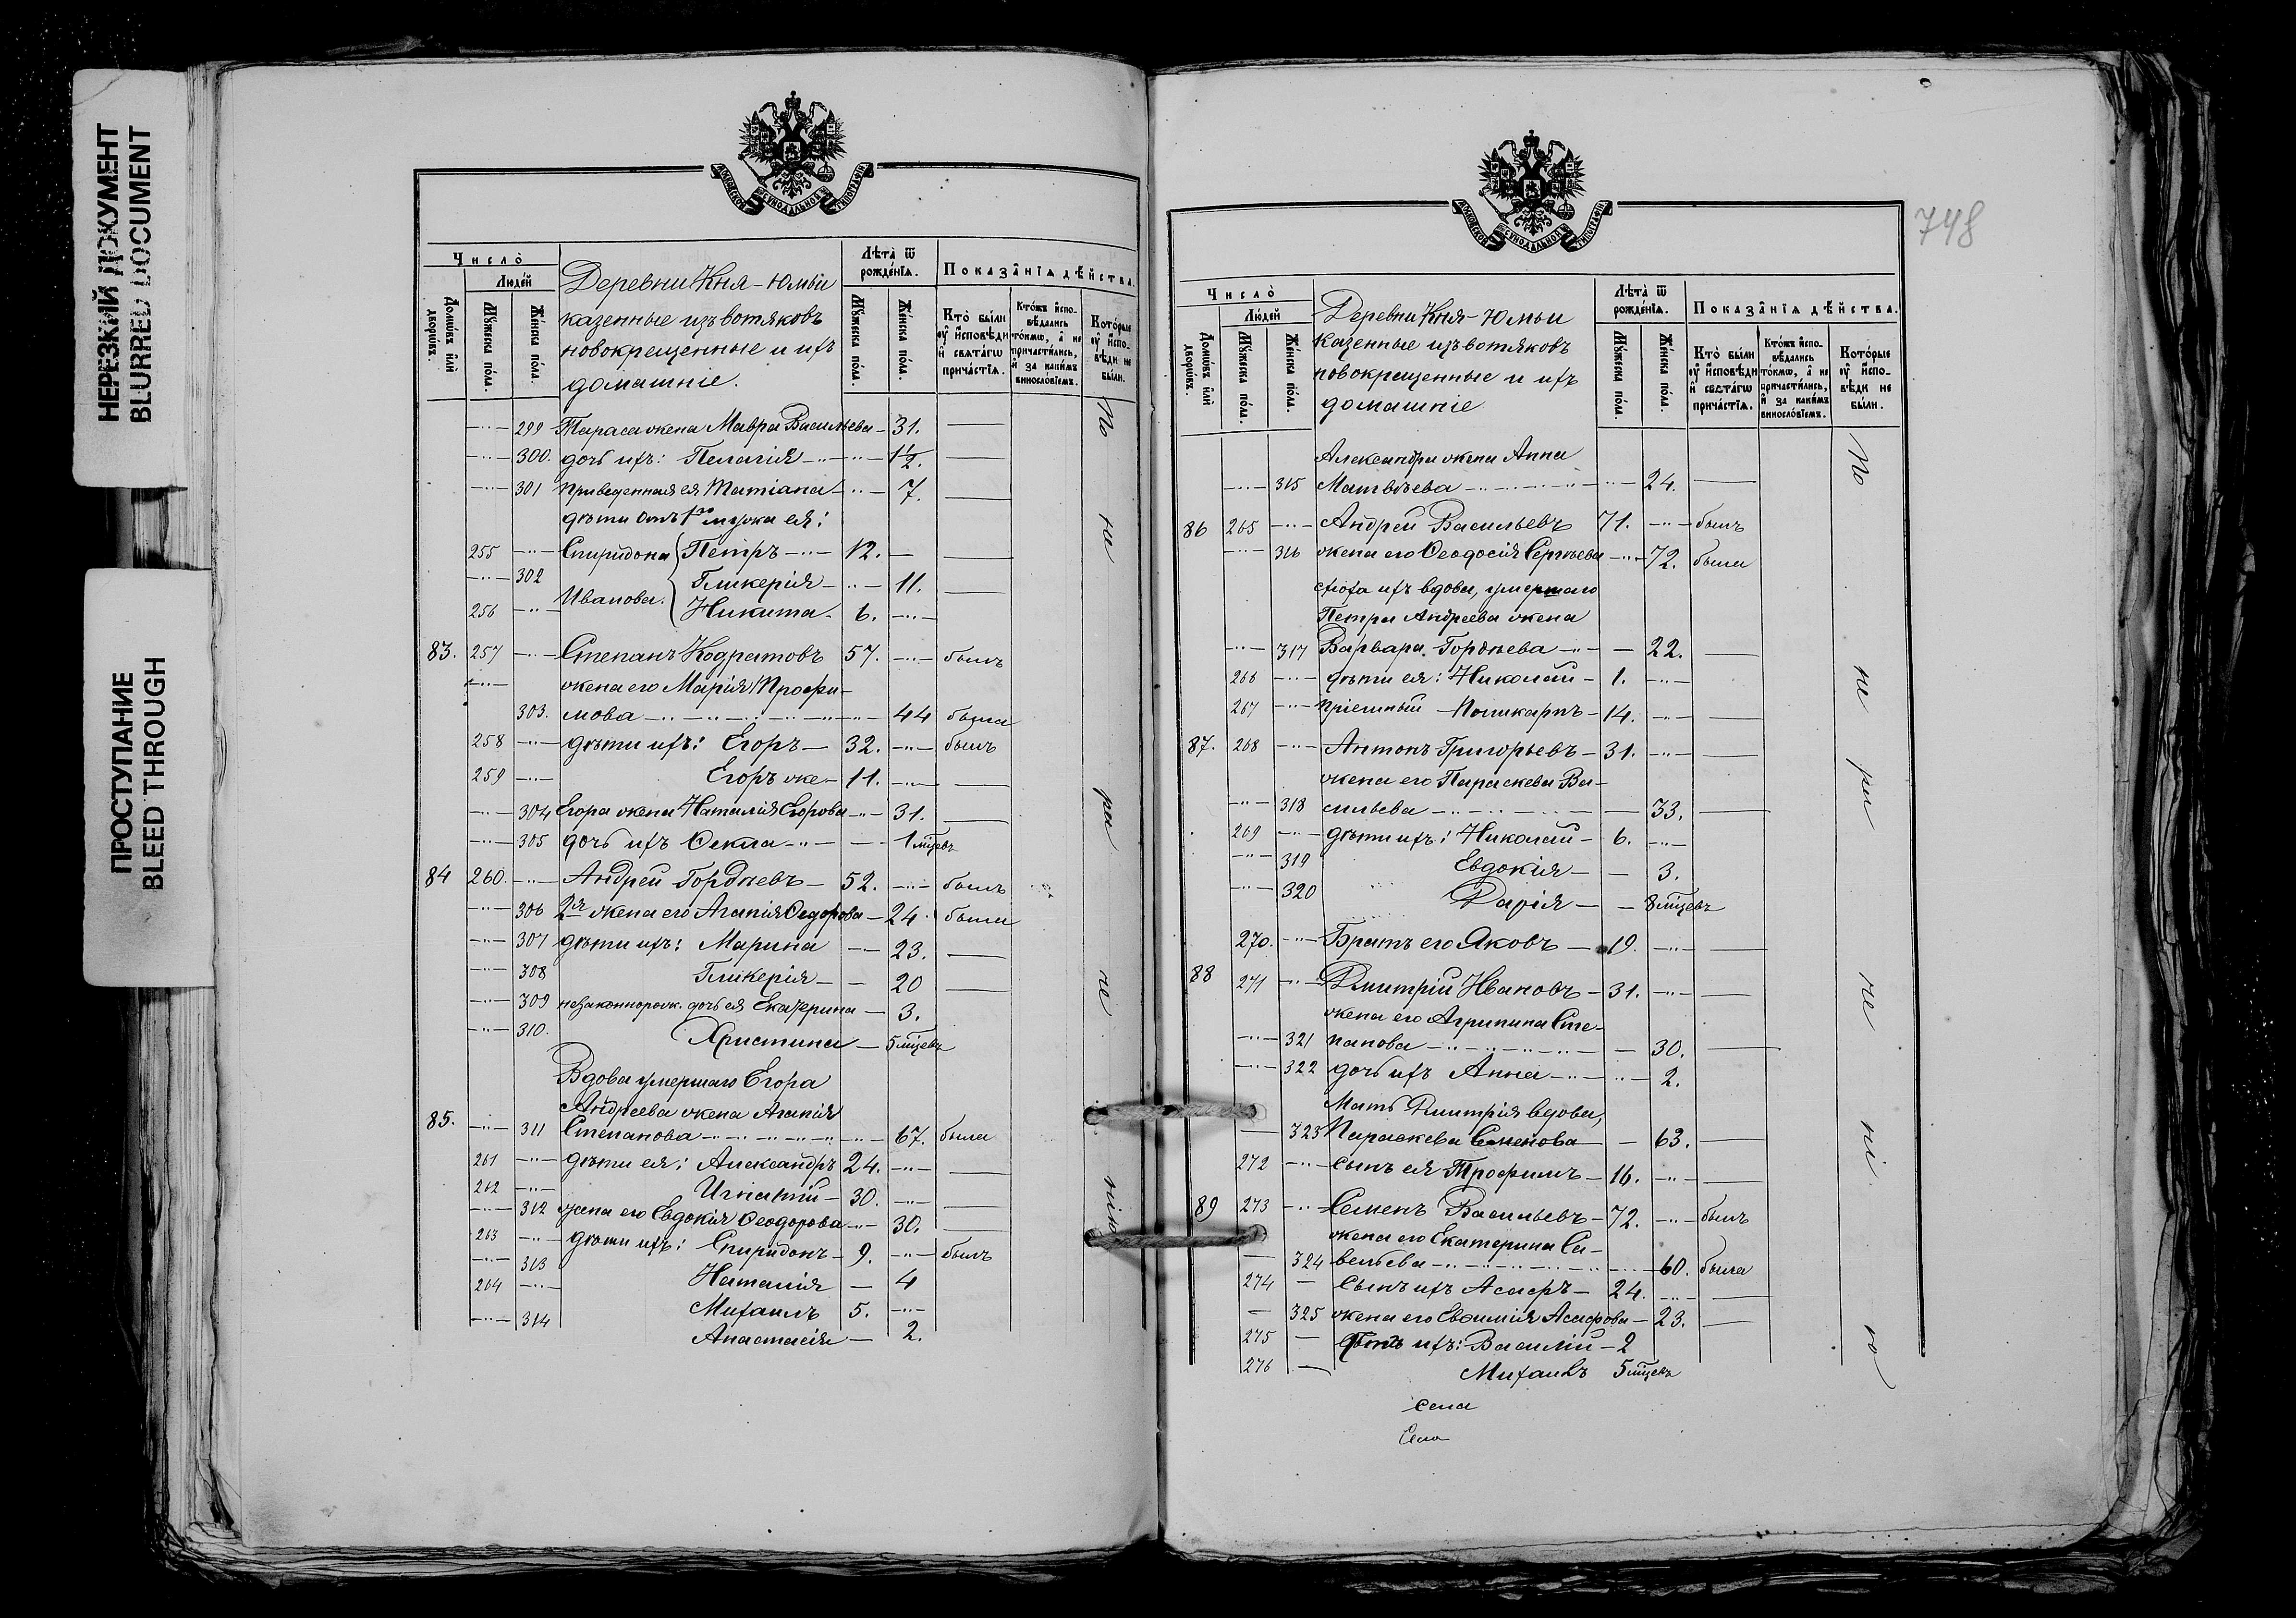 НЕРЕЗКИЙ ДОКУМЕНТ
BLURRED DOCUMENT
ПРОСТУПАНИЕ
BLEED THROUGH
МОСКОВСКОЙ СѴНОДАЛЬНОЙ ТИПОГРАФІИ
Число̀
Людей
Домѡвъ илѝ дворѡвъ.
Мꙋжеска пола.
Женска пола.
Деревни Кня-Юмьи
казенные изъ вотяковъ
новокрещенные и ихъ
домашніе.
Лѣта ѿ рожденія.
Мꙋжеска пола.
Женска пола.
Показанія дѣйства.
Кто были оу исповѣди и свѧтагѡ причастія.
Ктожъ исповѣдались токмѡ, а не причастились, и за какимъ винословіемъ.
Которые оу исповѣди не были.
299 Тараса жена Мавра Васильева 31.
300. дочь ихъ: Пелагія 1 1/2.
301 приведенная ея Татіана 7.
дѣти отъ 1го мужа ея:
255 Спиридона Петръ 12.
302 Гликерія 11.
Иванова.
256 Никита 6.
83. 257 Степанъ Кодратовъ 57. былъ
жена его Марія Трофи-
303. мова 44 была
258 дѣти ихъ: Егоръ 32. былъ
259 Егоръ же 11.
304 Егора жена Наталія Егорова 31.
305 дочь ихъ Ѳекла 1 мѣсцевъ
84 260. Андрей Гордѣевъ 52. былъ
306 2я жена его Агапія Ѳедорова 24. была
307 дѣти ихъ: Марина 23.
308 Гликерія 20
309 незаконнорож. дочь ея Екатерина 3.
310. Христина 5 мѣсцевъ
Вдова умершаго Егора
Андреева жена Агапія
85. 311 Степанова 67. была
261 дѣти ея: Александръ 24.
262 Игнатій 30.
312 жена его Евдокія Ѳеодорова 30.
263 дѣти ихъ: Спиридонъ 9. былъ
313 Наталія 4
264 Михаилъ 5.
314 Анастасія 2.
По не ра не нію
748
МОСКОВСКОЙ СѴНОДАЛЬНОЙ ТИПОГРАФІИ
Число̀
Людей
Домѡвъ илѝ дворѡвъ.
Мꙋжеска пола.
Женска пола.
Деревни Кня-Юмьи
казенные изъ вотяковъ
новокрещенные и ихъ
домашніе
Лѣта ѿ рожденія.
Мꙋжеска пола.
Женска пола.
Показанія дѣйства.
Кто были оу исповѣди и свѧтагѡ причастія.
Ктожъ исповѣдались токмѡ, а не причастились, и за какимъ винословіемъ.
Которые оу исповѣди не были.
Александра жена Анна
315 Матвѣева 24.
86 265 Андрей Васильевъ 71. былъ
316 жена его Ѳеодосія Сергѣева 72. была
сноха ихъ вдова, умершаго
Петра Андреева жена
317 Варвара Гордѣева 22.
266 дѣти ея: Николай 1.
267 пріемный Поликарпъ 14.
87. 268 Антонъ Григорьевъ 31.
жена его Параскева Ва-
318 сильева 33.
269 дѣти ихъ: Николай 6.
319 Евдокія 3.
320 Дарія 8 мѣсцевъ
270. Братъ его Яковъ 19.
88 271 Димитрій Ивановъ 31.
жена его Агрипина Сте-
321 панова 30.
322 дочь ихъ Анна 2.
Мать Димитрія вдова,
323 Параскева Семенова 63.
272 сынъ ея Трофимъ 16.
89 273 Семенъ Васильевъ 72. былъ
жена его Екатерина Са-
324 вельева 60. была
274 Сынъ ихъ Асафъ 24.
325 жена его Евѳимія Асафова 23.
275 Дѣти ихъ: Василій 2
276 Михаилъ 5 мѣсцевъ
села
Село
По не ра не ні ю